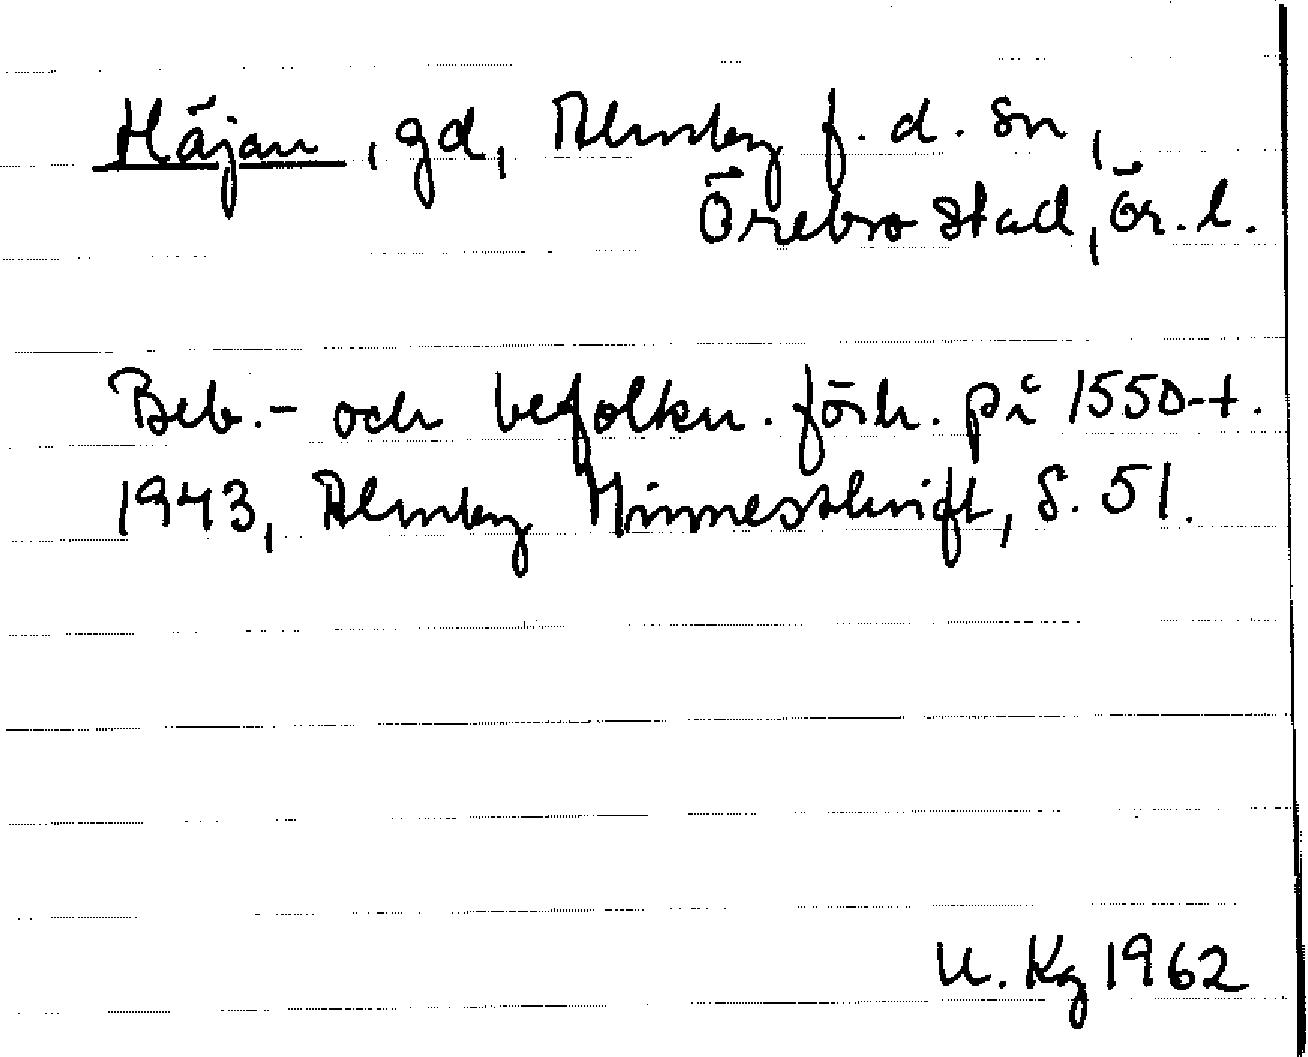 Häjan, gd, Almby f.d. sn,
Örebro stad, Ör. l.
Beb.- och befolkn. förh. på 1550-t.
1943, Almby Minnesskrift, S. 51.
U. Kg 1962